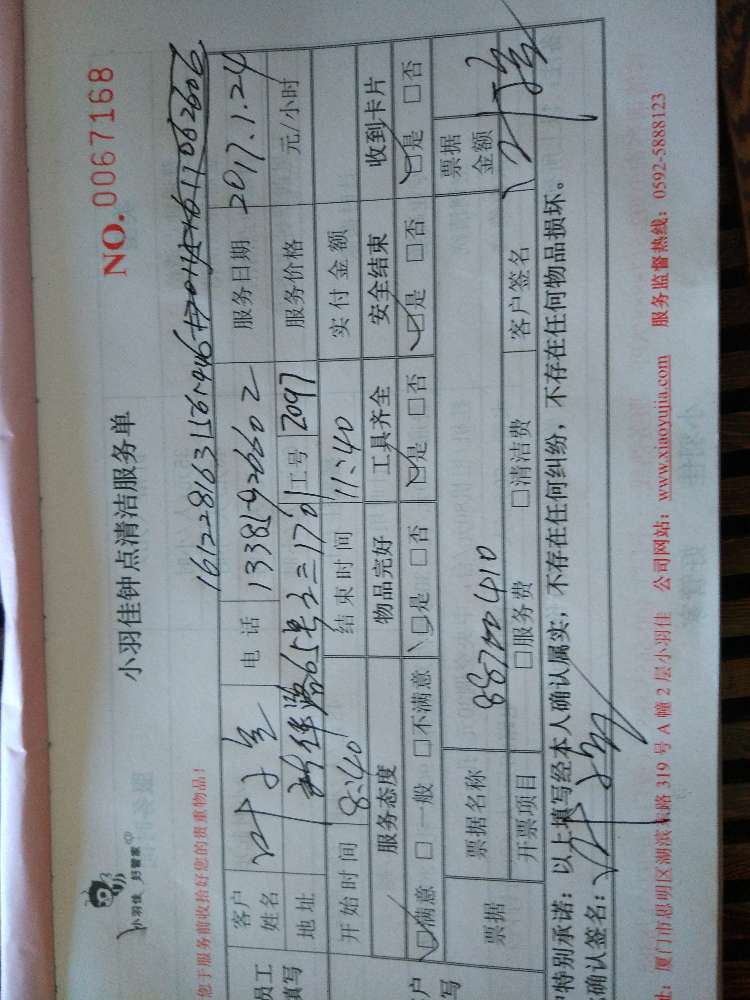 小羽佳 好管家
小羽佳钟点清洁服务单
NO.0067168
您于服务前收拾好您的贵重物品!
员工
填写
客户
姓名
电 话
服务日期 2017.1.24
地址
工号 2097
服务价格 元/小时
开始时间 8:40
结束时间 11:40
实付金额
服务态度 物品完好 工具齐全 安全结束 收到卡片
满意 □ 一般 □不满意 □是 □否 □是 □否 □是 □否 □是 □否
户
写
票据
票据名称: 88700410
票据
金额
开票项目 □服务费 □清洁费
客户签名
特别承诺:以上填写经本人确认属实,不存在任何纠纷,不存在任何物品损坏。
确认签名:
址:厦门市思明区湖滨东路 319 号 A 幢 2 层小羽佳 公司网站:www.xiaoyujia.com 服务监督热线:0592-5888123